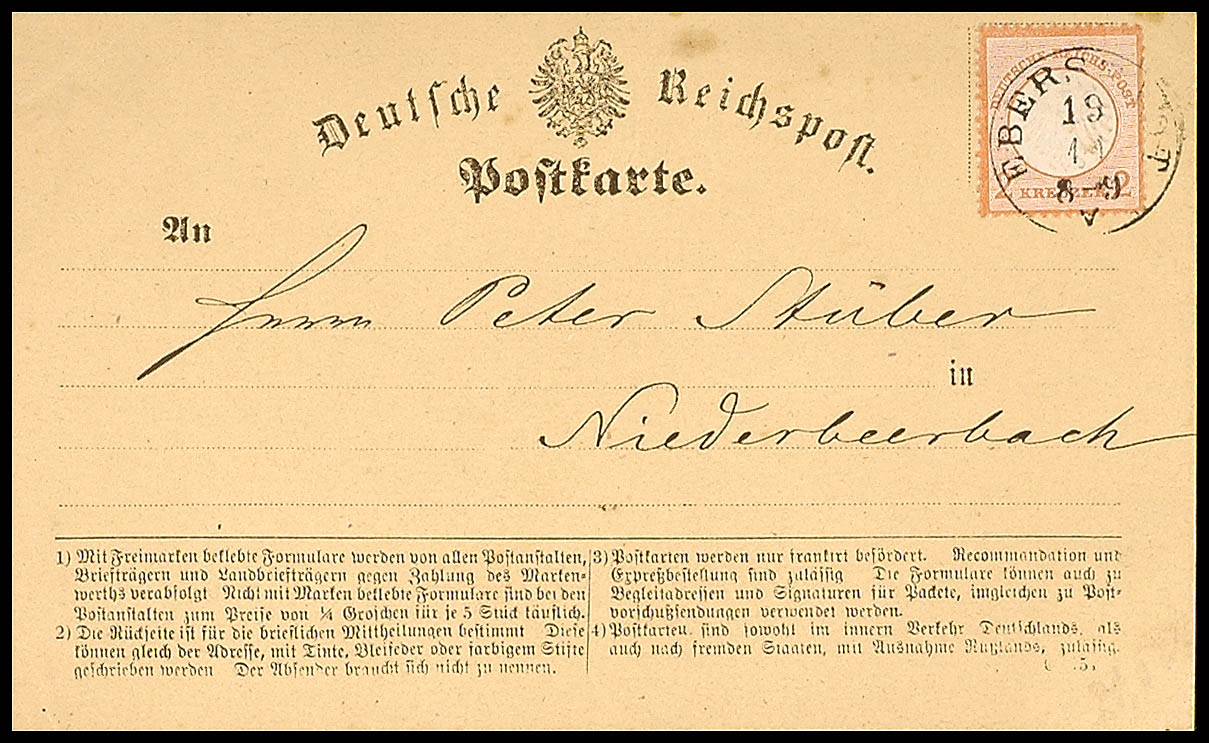 Deutsche Reichspost.
Postkarte.
DEUTSCHE REICHS-POST
2 KREUZER 2
EBERS
18
8-9
A
An
Herrn Peter Stüber
in
Niederbeerbach
1) Mit Freimarken beklebte Formulare werden von allen Postanstalten,
Briefträgern und Landbriefträgern gegen Zahlung des Marken-
werths verabfolgt Nicht mit Marken beklebte Formulare sind bei den
Postanstalten zum Preise von ¼ Groschen für je 5 Stück käuflich.
2) Die Rückseite ist für die brieflichen Mittheilungen bestimmt Diese
können gleich der Adresse, mit Tinte, Bleifeder oder farbigem Stifte
geschrieben werden Der Absender braucht sich nicht zu nennen.
3) Postkarten werden nur frankirt befördert. Recommandation und
Expreßbestellung sind zulässig Die Formulare können auch zu
Begleitadressen und Signaturen für Packete, imgleichen zu Post-
vorschußsendungen verwendet werden.
4) Postkarten sind sowohl im innern Verkehr Deutschlands, als
auch nach fremden Staaten, mit Ausnahme Rußlands, zulässig.